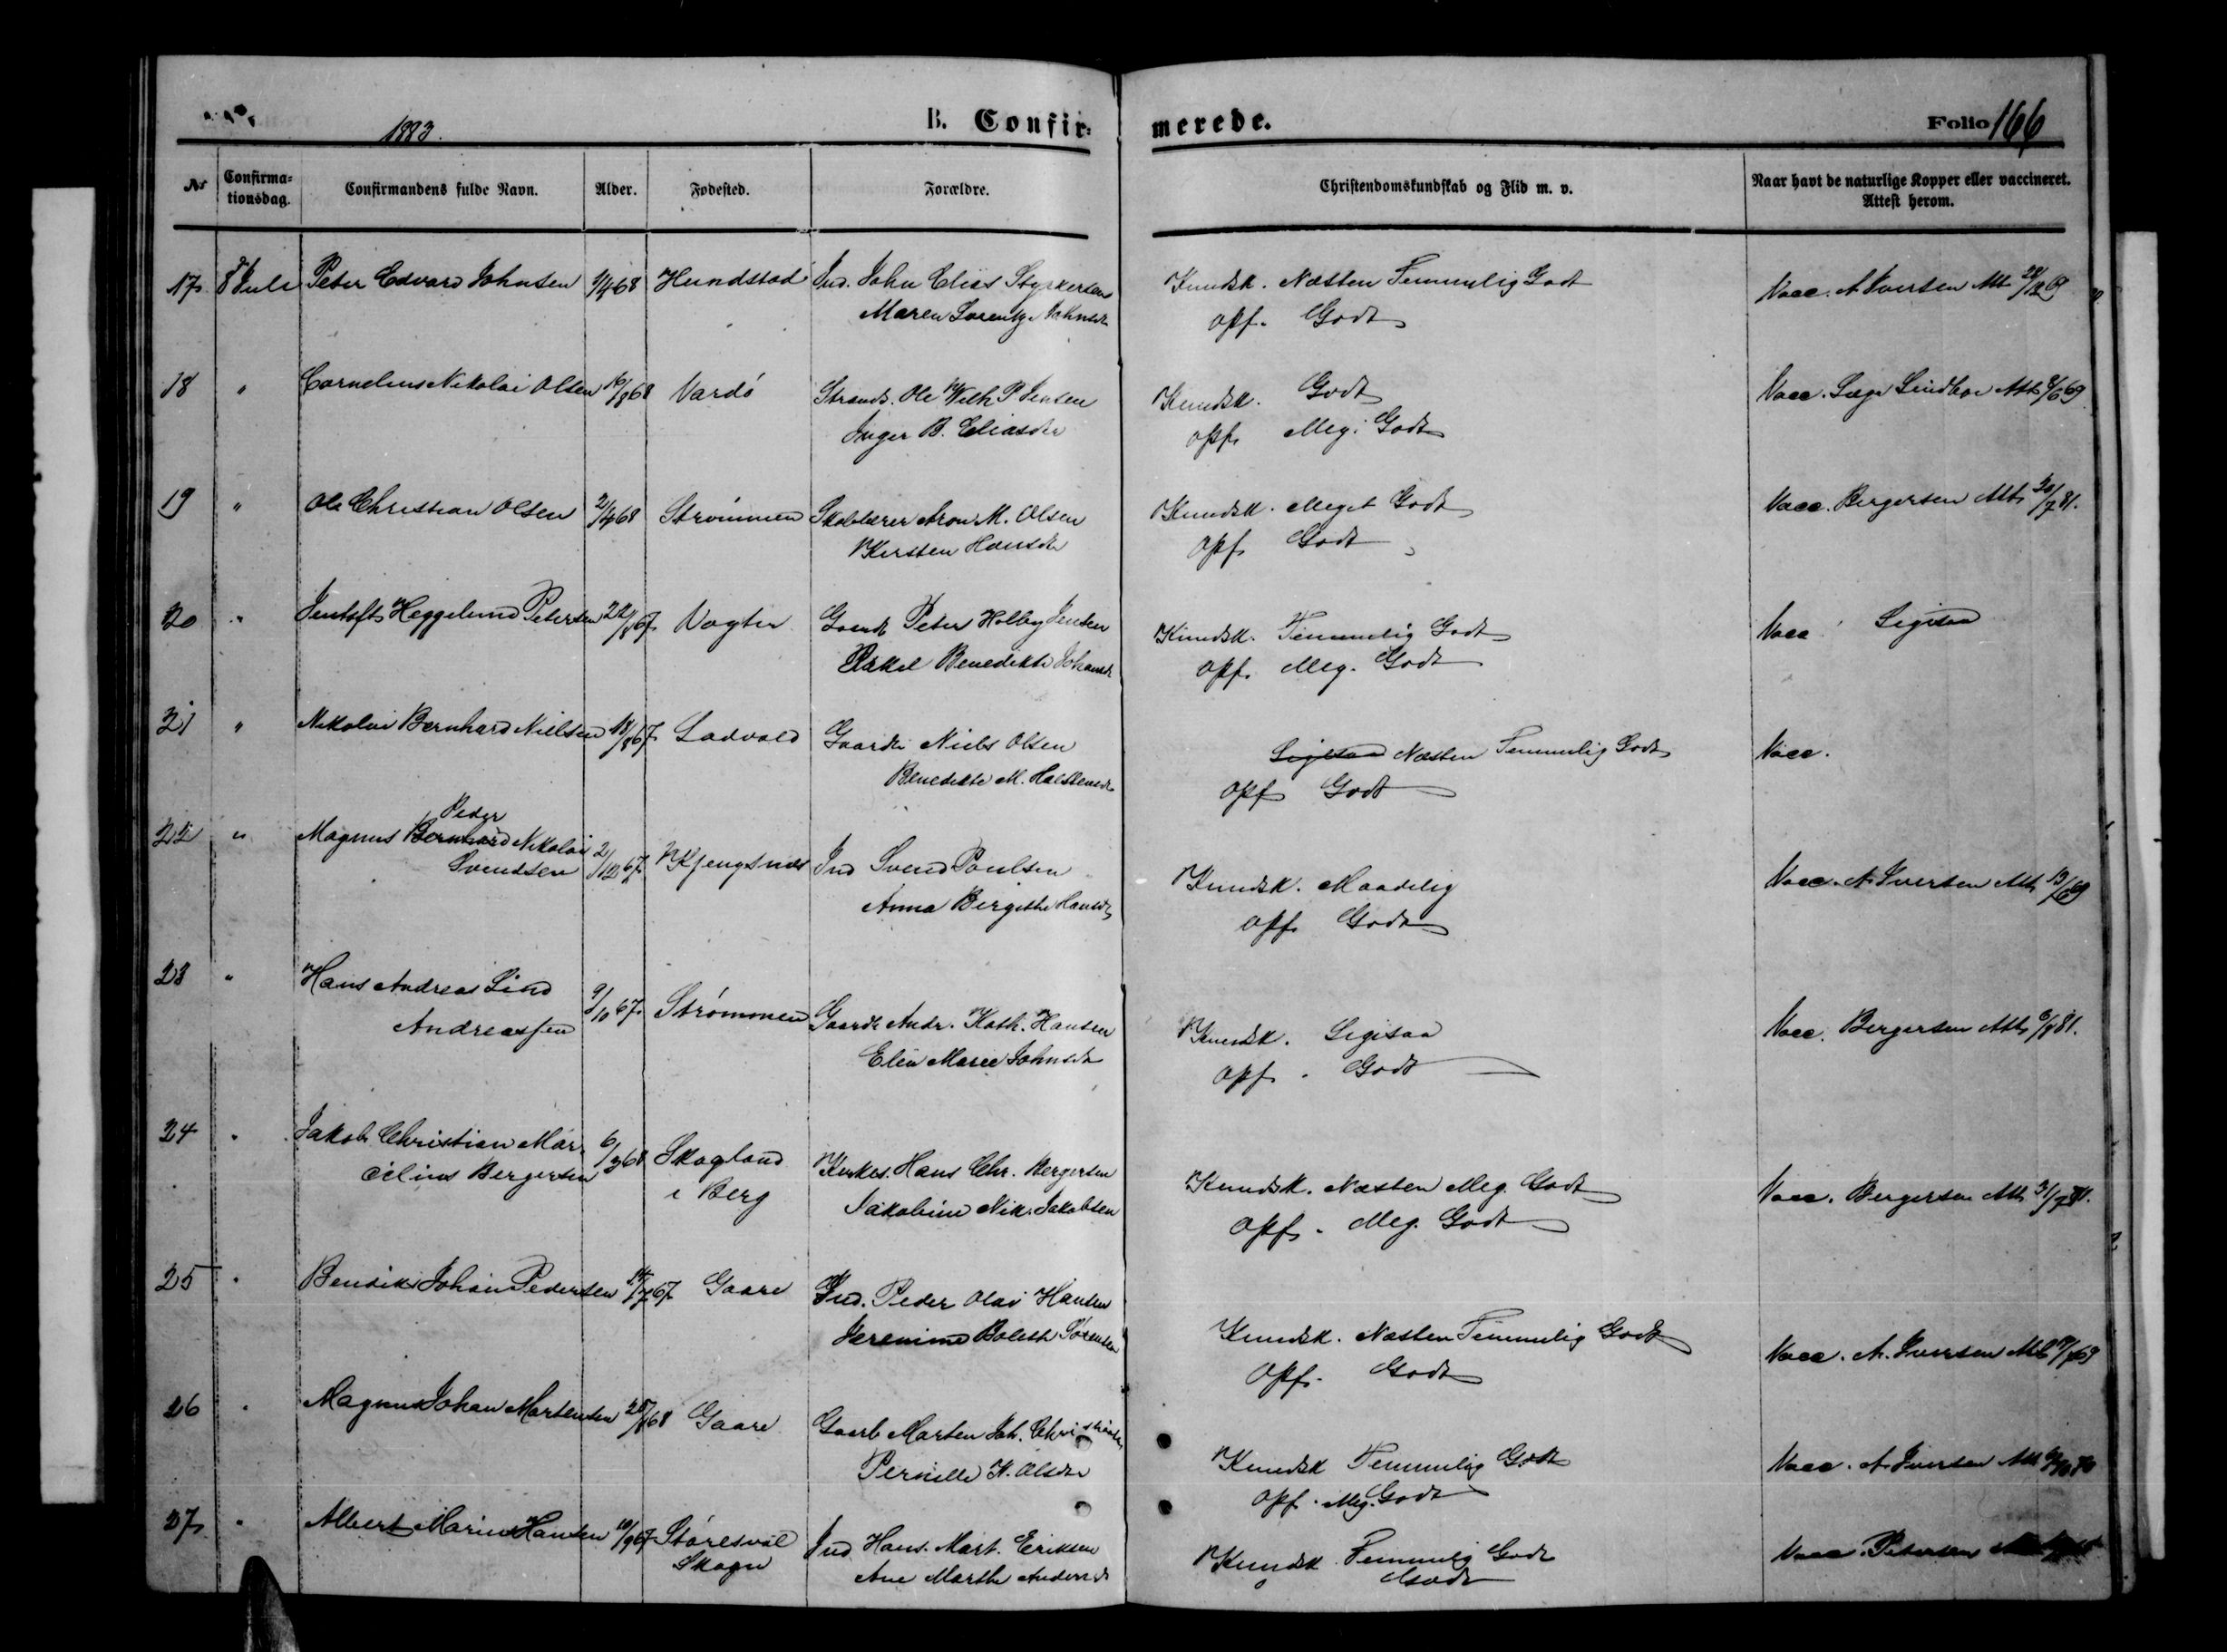 1883.
B. Confirmerede.
Folio 166
No
Confirmationsdag.
Confirmandens fulde Navn.
Alder.
Fødested.
Forældre.
Christendomskundskab og Flid m. v.
Naar havt de naturlige Kopper eller vaccineret. Attest herom.
17 8 Juli Peter Edvard Johnsen 1/4 68 Hundstad Ind. John Elias Styrkersen Kundsk. Næsten Temmelig Godt Vacc. A Iversen Att 28/ 69
Maren Lorentze Johnsdt Opf. Godt
18 " Cornelius Nikolai Olsen 16/8 68 Vardø Strands. Ole Wilh P Jensen Kundsk. Godt Vacc. Læge Lindboe Att /6 69
Inger B. Eliasdtr Opf. Meg. Godt
19 " Ole Christian Olsen 2/4 68 Strømmen Skolelærer Aron M. Olsen Kundsk. Meget Godt Vacc. Bergersen Att 20/7 81.
Kirsten Hansdtr Opf. Godt
20 " Jentoft Heggelund Petersen 22/8 67 Vogter Gaardb Peter Holby Jensen Kundsk. Temmelig Godt Vacc Ligesaa
Rakel Benedikte Johansdt Opf. Meg. Godt
21 " Nikolai Bernhard Nielsen 18/8 67 Ladvold Gaardb Niels Olsen Ligesaa Næsten Temmelig Godt Vacc.
Benedikte M. Halstensdt Opf Godt
22 " Magnus Bernhard Peder Nikolai 2/12 67 Kjengsnæs Ind Svend Poulsen Kundsk. Maadelig Vacc. A Iversen Att 13/ 69
Svendsen Anna Birgithe Hansdt Opf. Godt
23 " Hans Andreas Lind 9/10 67 Strømmen Gaardb Andr. Kath. Hansen Kundsk. Ligesaa Vacc. Bergersen Att 6/8 81.
Andreassen Elen Marie Johnsdt Opf. Godt
24 " Jakob Christian Mar- 6/3 68 Skagland Kirkes. Hans Chr. Bergersen Kundsk. Næsten Meg. Godt Vacc. Bergersen Att 31/7 81.
celius Bergersen i Berg Jakobine Nik. Jakobsen Opf. Meg. Godt
25 " Bendik Johan Pedersen 14/7 67 Gaare Ind. Peder Olai Hansen Kundsk. Næsten Temmelig Godt Vacc. A. Iversen Att 69
Jeremine Bolette Sørensen Opf. Godt
26 " Magnus Johan Martensen 28/ 68 Gaare Gaardb Marten Joh. Christians Kundsk Temmelig Godt Vacc. A Iversen Att
Pernille K. Olsdtr Opf. Meg. Godt
27 " Albert Marius Hansen 10/9 67 Storesval Ind Hans Mart. Eriksen Kundsk Temmelig Godt Vacc. Petersen
Skogn Ane Marthe Andersdt Godt